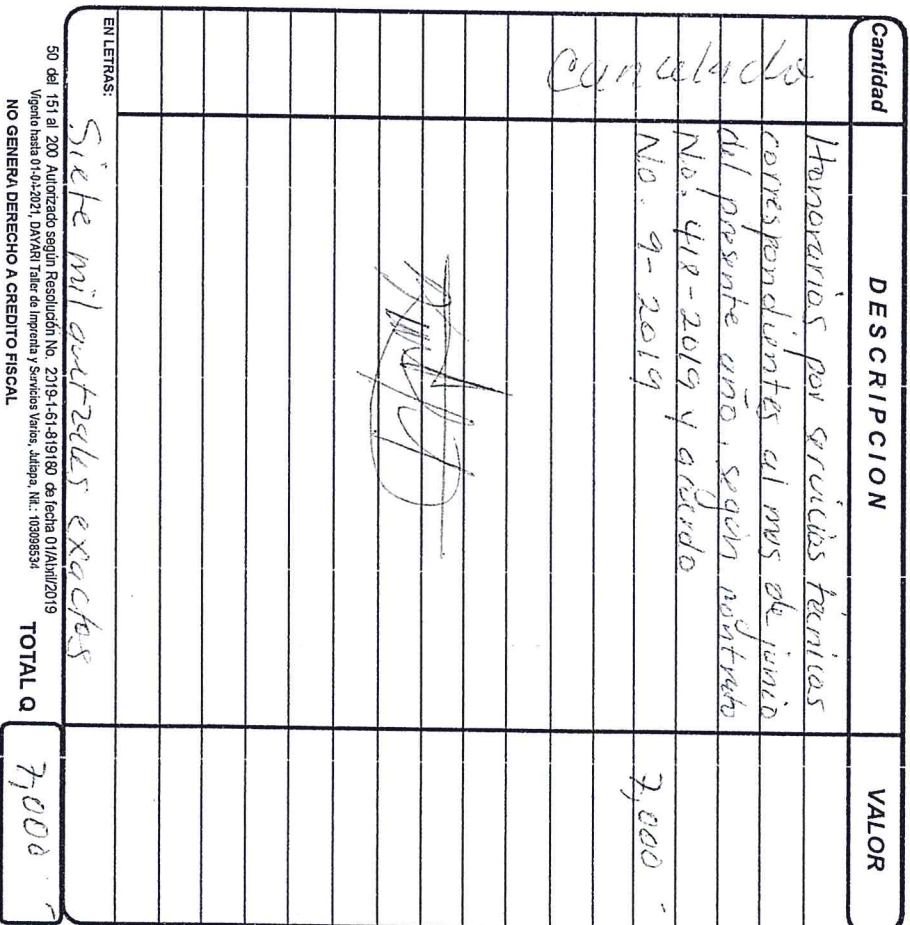 Cantidad DESCRIPCION VALOR
Honorarios por servicios técnicos
correspondientes al mes de junio
del presente año, según contrato
No. 418-2019 y acuerdo
No. 9-2019 7,000
Cancelado
EN LETRAS: Siete mil quetzales exactos
50 del 151 al 200 Autorizado según Resolución No. 2019-1-61-819160 de fecha 01/Abril/2019
Vigente hasta 01-04-2021, DAYARI Taller de Imprenta y Servicios Varios, Jutiapa, Nit.: 103098534
NO GENERA DERECHO A CREDITO FISCAL
TOTAL Q 7,000